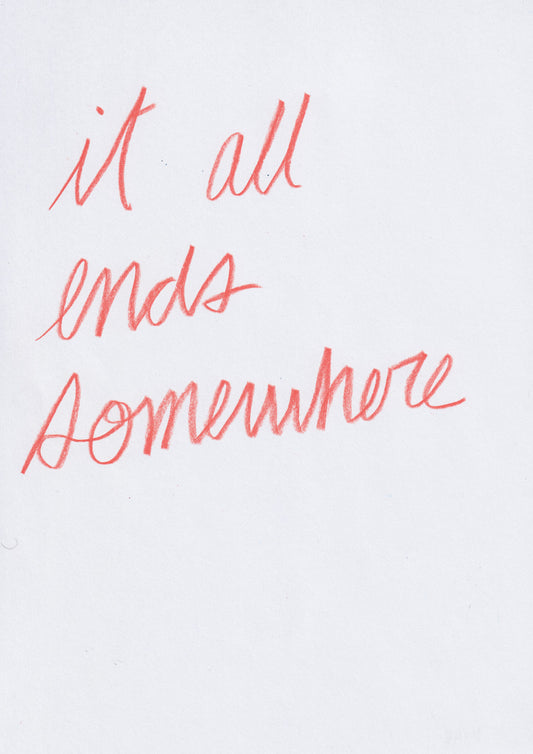 it all
ends
somewhere